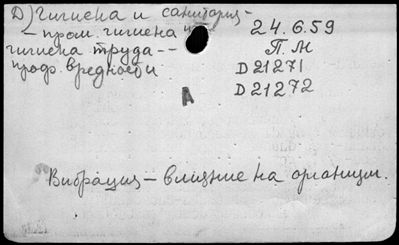 Д) Гигиена и санитария -
- пром. гигиена и
гигиена труда --
проф. вредности
24.6.59
П. М
D 21271
D 21272
А
Вибрация - влияние на организм.